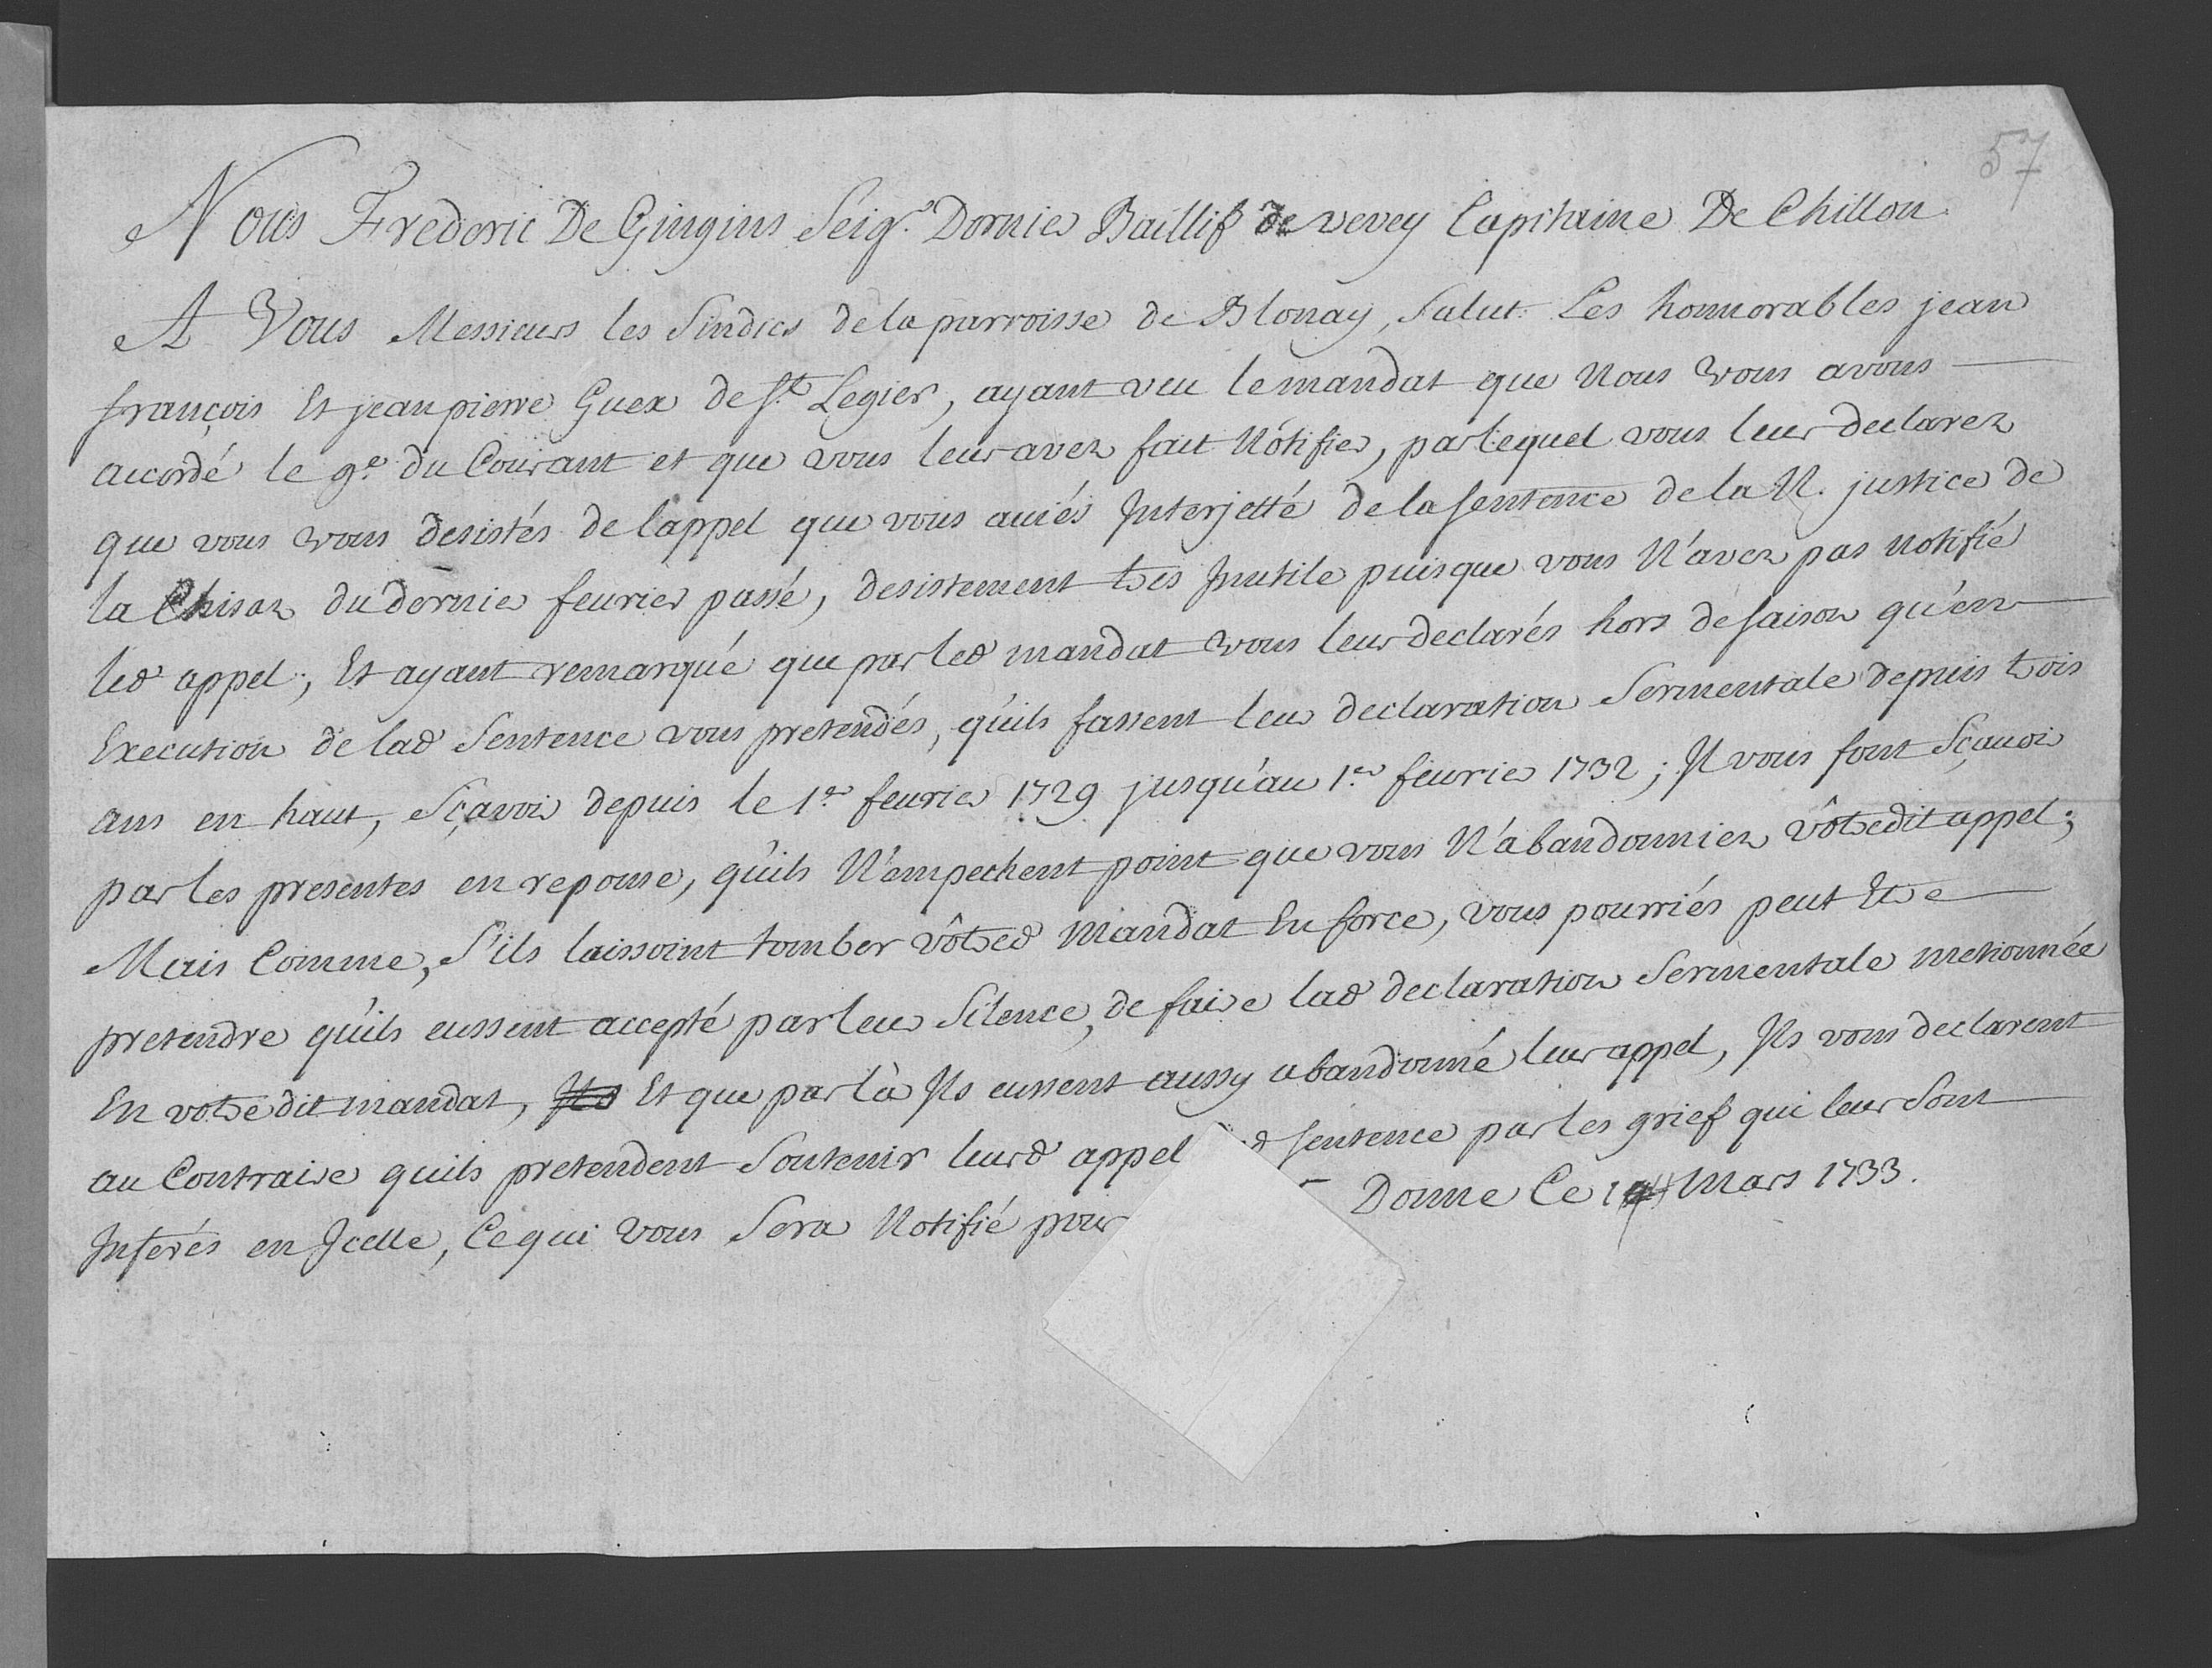 57
Nous Frederic De Gingins Seigr. Dornier Baillif de vevey Capitaine De Chillon
A Vous Messieurs les Sindics de la parroisse de Blonay, Salut. Les honnorables jean
françois Et jean pierre Guex de St. Legier, ayant veu le mandat que Nous vous avons
accordé le 9e. du Courant et que vous leur avez fait Nótifier, par lequel vous leur declarez
que vous vous desistés de l'appel que vous aviés Interjetté de la sentence de la N. justice de
la Chisaz du dernier feurier passé, desistement tres Inutile puisque vous N'avez pas notifié
led appel; Et ayant remarqué que par led mandat vous leur declarés hors de saison qu'en
Execution de lad Sentence vous pretendés, qu'ils fassent leur declaration Sermentale depuis trois
ans en haut, Sçavoir depuis le 1er feurier 1729 jusqu'au 1er feurier 1732; Il vous font Sçavoir
par les presentes en reponse, qu'ils N'empechent point que vous N'abandonniez vôtredit appel;
Mais Comme, S'ils laissoint tomber vôtred Mandat En force, vous pourriés peut Etre
pretendre qu'ils eussent accepté par leur Silence, de faire lad declaration Sermentale metionnée
En votredit mandat, Ils Et que par là Ils eussent aussy abandonné leur appel, Ils vous declarent
au Contraire quils pretendent Soutenir leurd appel sentence par les grief qui leur Sont
Inferés en Jcelle, Ce qui vous Sera Notifié pour Donne Ce 14 Mars 1733.